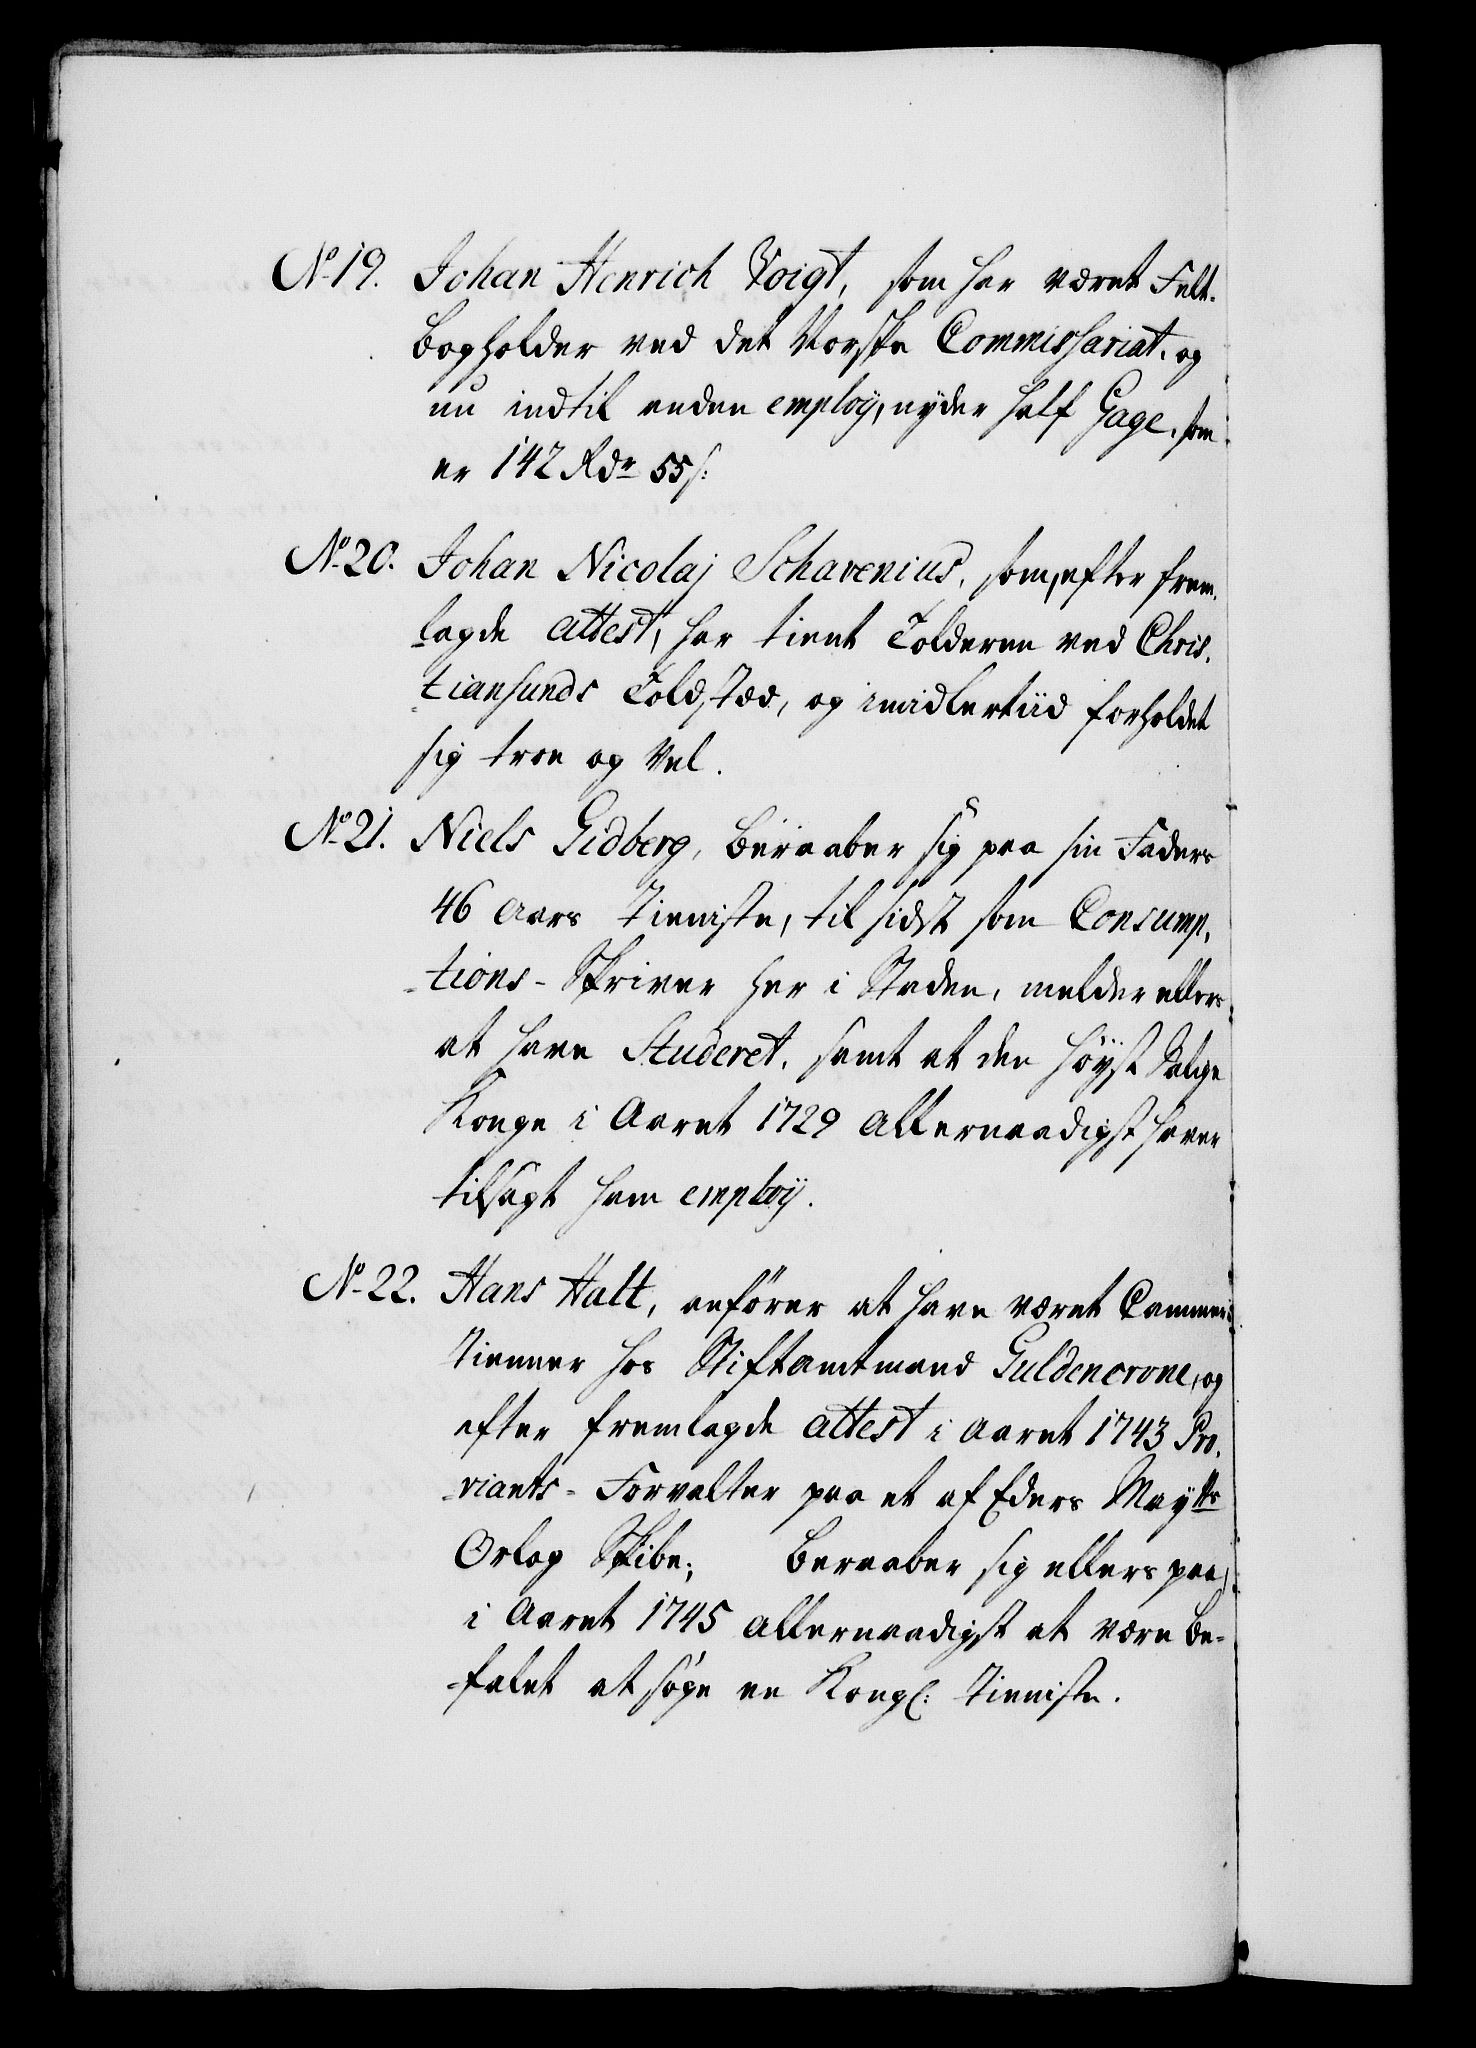 No 19. Johan Henrich Voigt, som har været Felt-
bogholder ved det Norske Commissariat, og
nu indtil anden employ, nyder half Gage, som
er 142 Rdr 55 s:
No 20. Johan Nicolaj Schavenius, som, efter frem-
lagde attest, har tient Tolderen ved Chris-
tiansunds Toldstæd, og imidlertiid forholdet
sig troe og vel.
No 21. Niels Gidberg, beraaber sig paa sin Faders
46 Aars Tieniste, til sidst som Consump-
-tions-Skriver her i Staden, melder ellers
at have Studeret, samt at den høyst Salige
Konge i Aaret 1729 allernaadigst haver
tilsagt ham employ.
No 22. Hans Halt, anfører at have været Cammer-
Tienner hos Stiftamtmand Guldencrone, og
efter fremlagde attest i Aaret 1743 Pro-
-viants-Forvalter paa et af Eders Maytts
Orlog Skibe; beraaber sig ellers paa,
i Aaret 1745 allernaadigst at være be-
-falet at søge en Kongl: Tieniste.